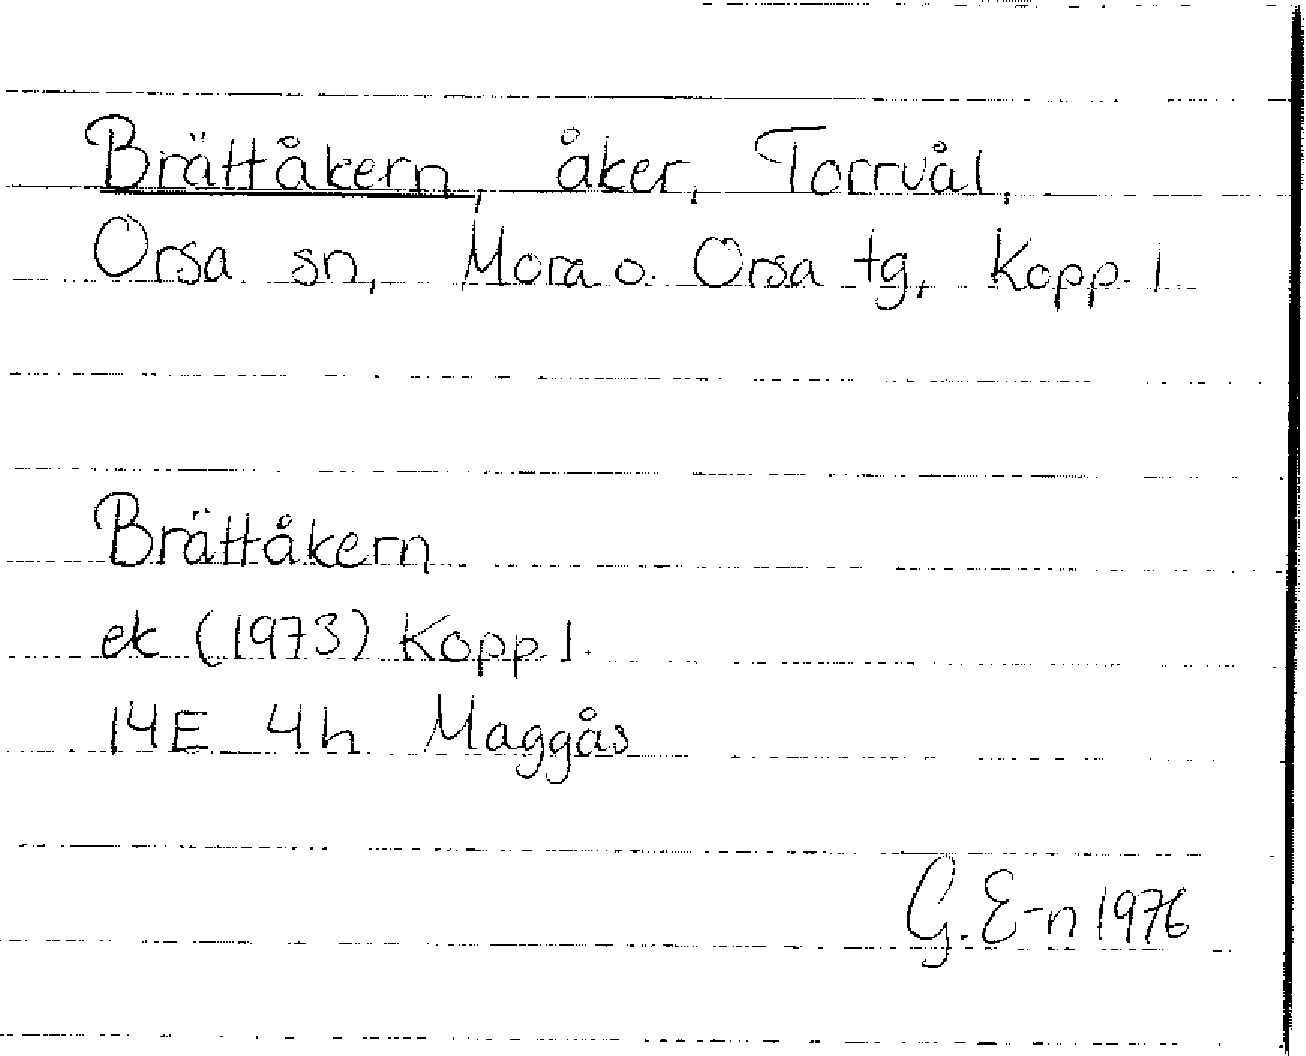 Brättåkern, åker, Torrvål,
Orsa sn, Mora o. Orsa tg, Kopp. l
Brättåkern
ek (1973) Kopp. l.
14E 4h Maggås
G. E-n 1976